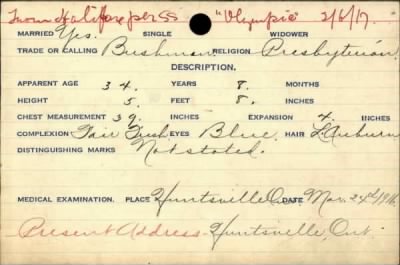 From Halifax per SS "Olympic" 2/6/17.
MARRIED Yes. SINGLE WIDOWER
TRADE OR CALLING Bushman RELIGION Presbyterian.
DESCRIPTION.
APPARENT AGE 34. YEARS 8. MONTHS
HEIGHT 5. FEET 8. INCHES
CHEST MEASUREMENT 39 INCHES EXPANSION 4. INCHES
COMPLEXION Fair Fresh EYES Blue. HAIR L. Auburn
DISTINGUISHING MARKS Not stated.
MEDICAL EXAMINATION. PLACE Huntsville DATE Mar. 24th/1916.
Present Address - Huntsville, Ont.